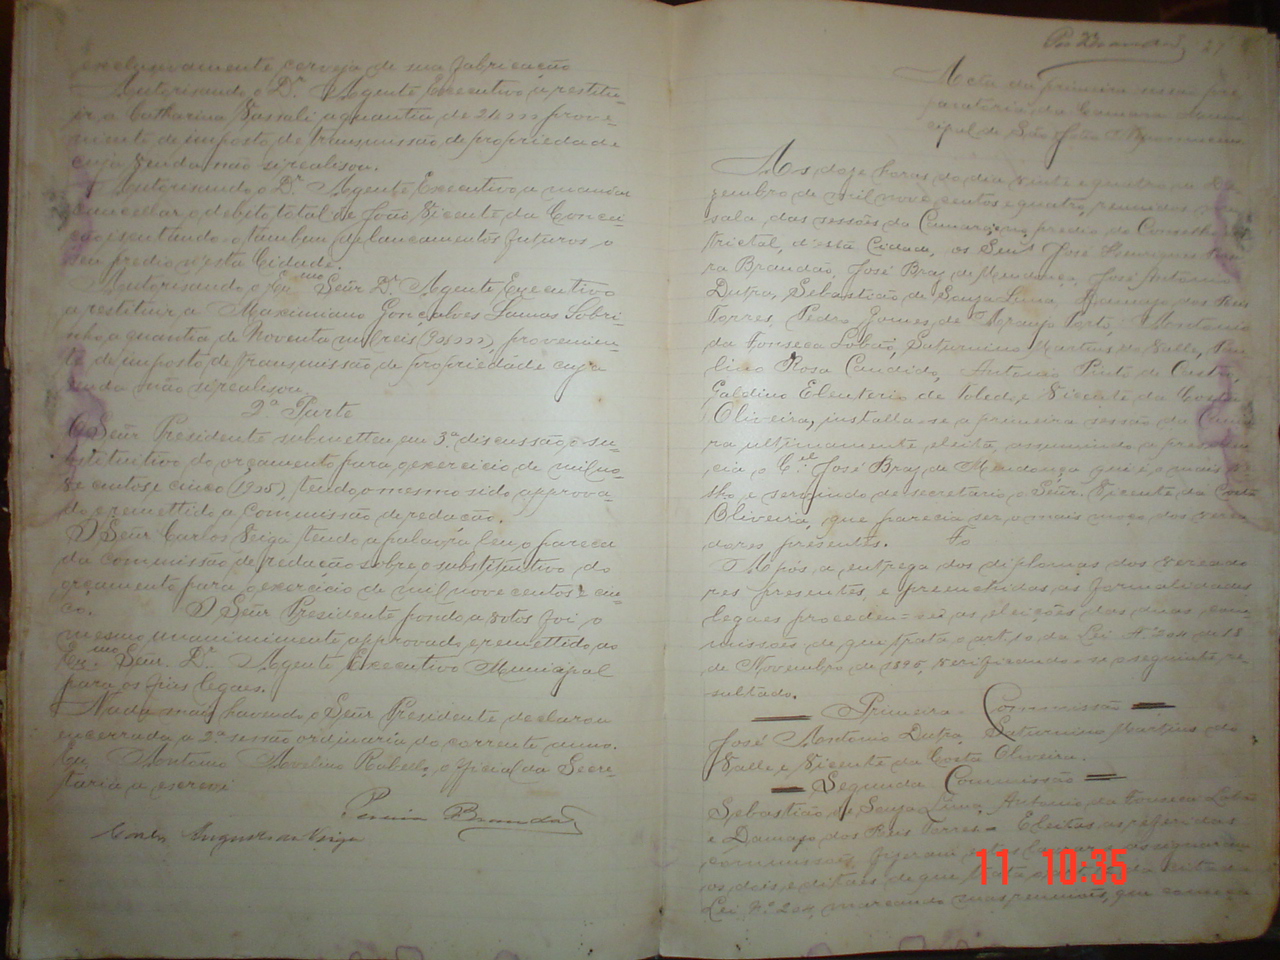 exclusivamente cerveja de sua fabricação
Autorisando o Dr. Agente Executivo a restitu-
ir a Catharina Vassali a quantia de 24$000 prove-
niente de imposto de transmissão de propriedade
cuja venda não se realisou.
Autorisando o Dr. Agente Executivo a mandar
cancellar o debito total de João Vicente da Concei-
ção isentando-o tambem de lançamentos futuros o
seu predio n'esta Cidade.
Autorisando o Exmo Señr Dr. Agente Executivo
a restituir a Maximiano Gonçalves Lamas Sobri-
nho a quantia de Noventa mil reis (90$000) provenien-
te de imposto de transmissão de propriedade cuja
venda não se realisou.
2ª Parte
O Señr Presidente submetteu em 3ª discussão o su-
bstitutivo do orçamento para o exercicio de mil no-
ve centos e cinco (1905), tendo o mesmo sido approva-
do e remettido a Commissão de redação.
O Señr Carlos Veiga tendo a palavra leu o parecer
da commissão de redação sobre o substitutivo do
orçamento para o exercicio de mil nove centos e cin-
co. O Señr Presidente pondo a votos foi o
mesmo unanimimente approvado e remettido ao
Exmo Señr. Dr. Agente Executivo Municipal
para os fins legaes.
Nada mais havendo o Señr Presidente declarou
encerrada a 2ª sessão ordinaria do corrente anno.
Eu, Antonio Avelino Rabello, o official da Secre-
taria a escrevi
Pereira Brandão
Carlos Augusto da Veiga
Per Brandão 27
Acta da primeira sessão pre
paratoria da Camara Muni
cipal de São João Nepomuceno
Aos doze horas do dia vinte e quatro de De
zembro de mil nove centos e quatro, reunidos
sala das sessões da Camara, no predio do Conselho
trictal, d'esta Cidade, os Senrs José Henriques
ra Brandão, José Braz de Mendonça, José Antonio
Dutra, Sebastião de Souza Lima, Damazo dos Reis
Torres, Pedro Gomes de Araujo Porto, Antonio
da Fonseca Lobão, Saturnino Martins do Valle,
lino Rosa Candido, Antonio Pinto de Castro,
Galdino Eleuterio de Toledo, e Vicente da Costa
Oliveira, installa-se a primeira sessão da Cama
ra ultimamente eleita, assumindo a presiden
cia o Cel. José Braz de Mendonça que é o mais ve
lho e servindo de secretario o Señr. Vicente da Costa
Oliveira, que parecia ser o mais moço dos verea
dores presentes.
Após a entrega dos diplomas dos vereado
res presentes, e preenchidas as formalidades
legaes proceden-se as eleições das duas com
missões de que trata o art. 10 da Lei Nº 204 de 18
de Novembro de 1895, verificando-se o seguinte re
sultado.
Primeira Commissão
José Antonio Dutra, Saturnino Martins do
Valle e Vicente da Costa Oliveira.
Segunda Commissão
Sebastião de Souza Lima, Antonio da Fonseca Lobão
e Damazo dos Reis Torres. Eleitas as referidas
commissões, fizeram
os dois editaes de que trata da citada
Lei Nº 204, marcando suas reuniões, que começa
11 10:35